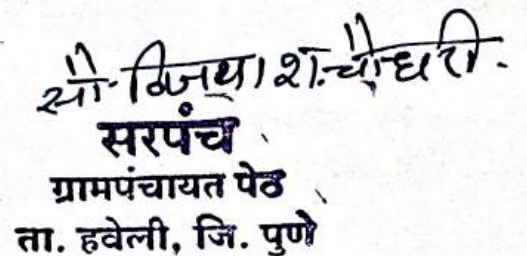 सौ. विजया शं. चौधरी.
सरपंच
ग्रामपंचायत पेठ
ता. हवेली, जि. पुणे